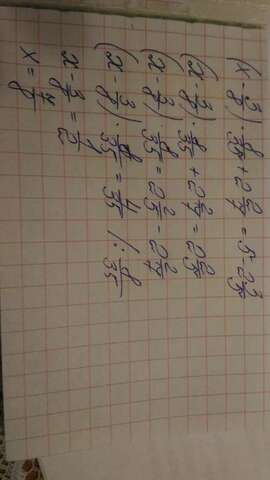 (x - 3/8) · 8/35 + 2 2/7 = 5 - 2 3/5
(x - 3/8) · 8/35 + 2 2/7 = 2 2/5
(x - 3/8) · 8/35 = 2 2/5 - 2 2/7
(x - 3/8) · 8/35 = 4/35 /: 8/35
x - 3/8 = 1/2
x = 7/8